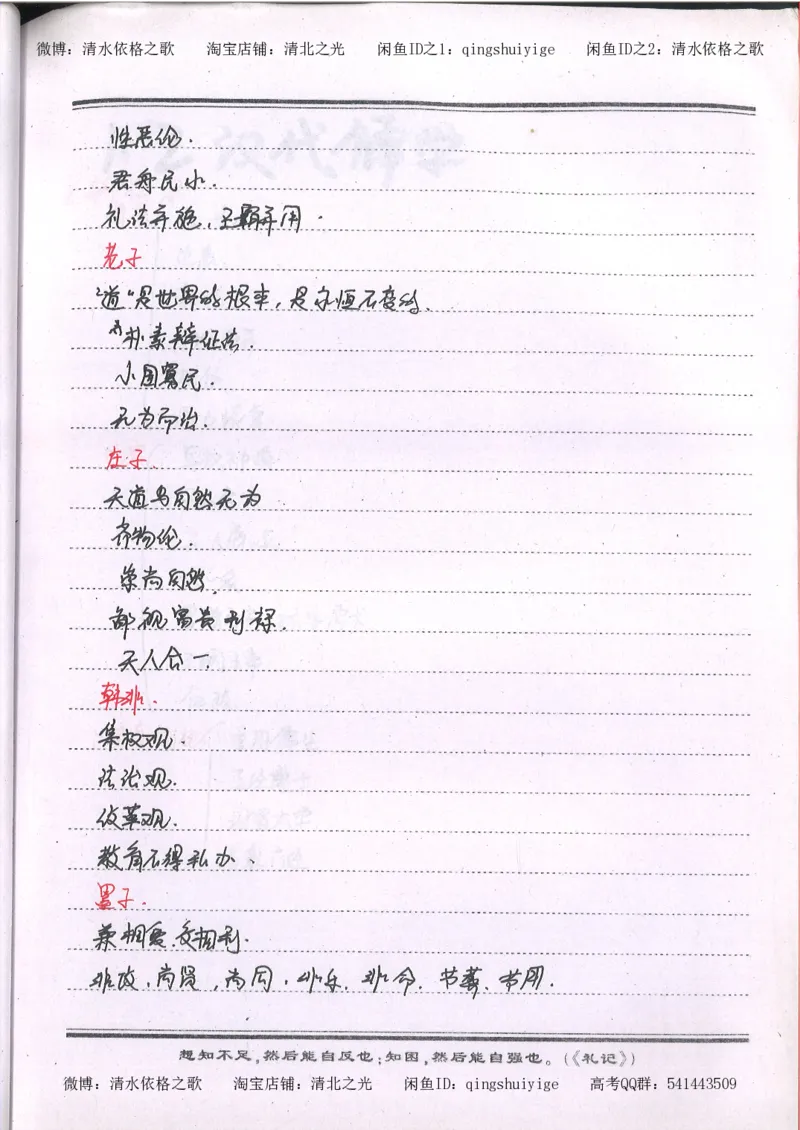 微博：清水依格之歌 淘宝店铺：清北之光 闲鱼ID之1：qingshuiyige 闲鱼ID之2：清水依格之歌
性恶论.
君舟民水.
礼法并施，王霸并用.
老子
"道"是世界的根本，是永恒不变的.
朴素辩证法.
小国寡民.
无为而治.
庄子.
天道自然无为
齐物论.
崇尚自然.
鄙视富贵利禄.
天人合一.
韩非.
集权观.
法治观.
改革观.
教育不得私办.
墨子.
兼相爱.交相利.
非攻.尚贤，尚同.非乐.非命.节葬.节用.
想知不足，然后能自反也；知困，然后能自强也。（《礼记》）
微博：清水依格之歌 淘宝店铺：清北之光 闲鱼ID：qingshuiyige 高考QQ群：541443509